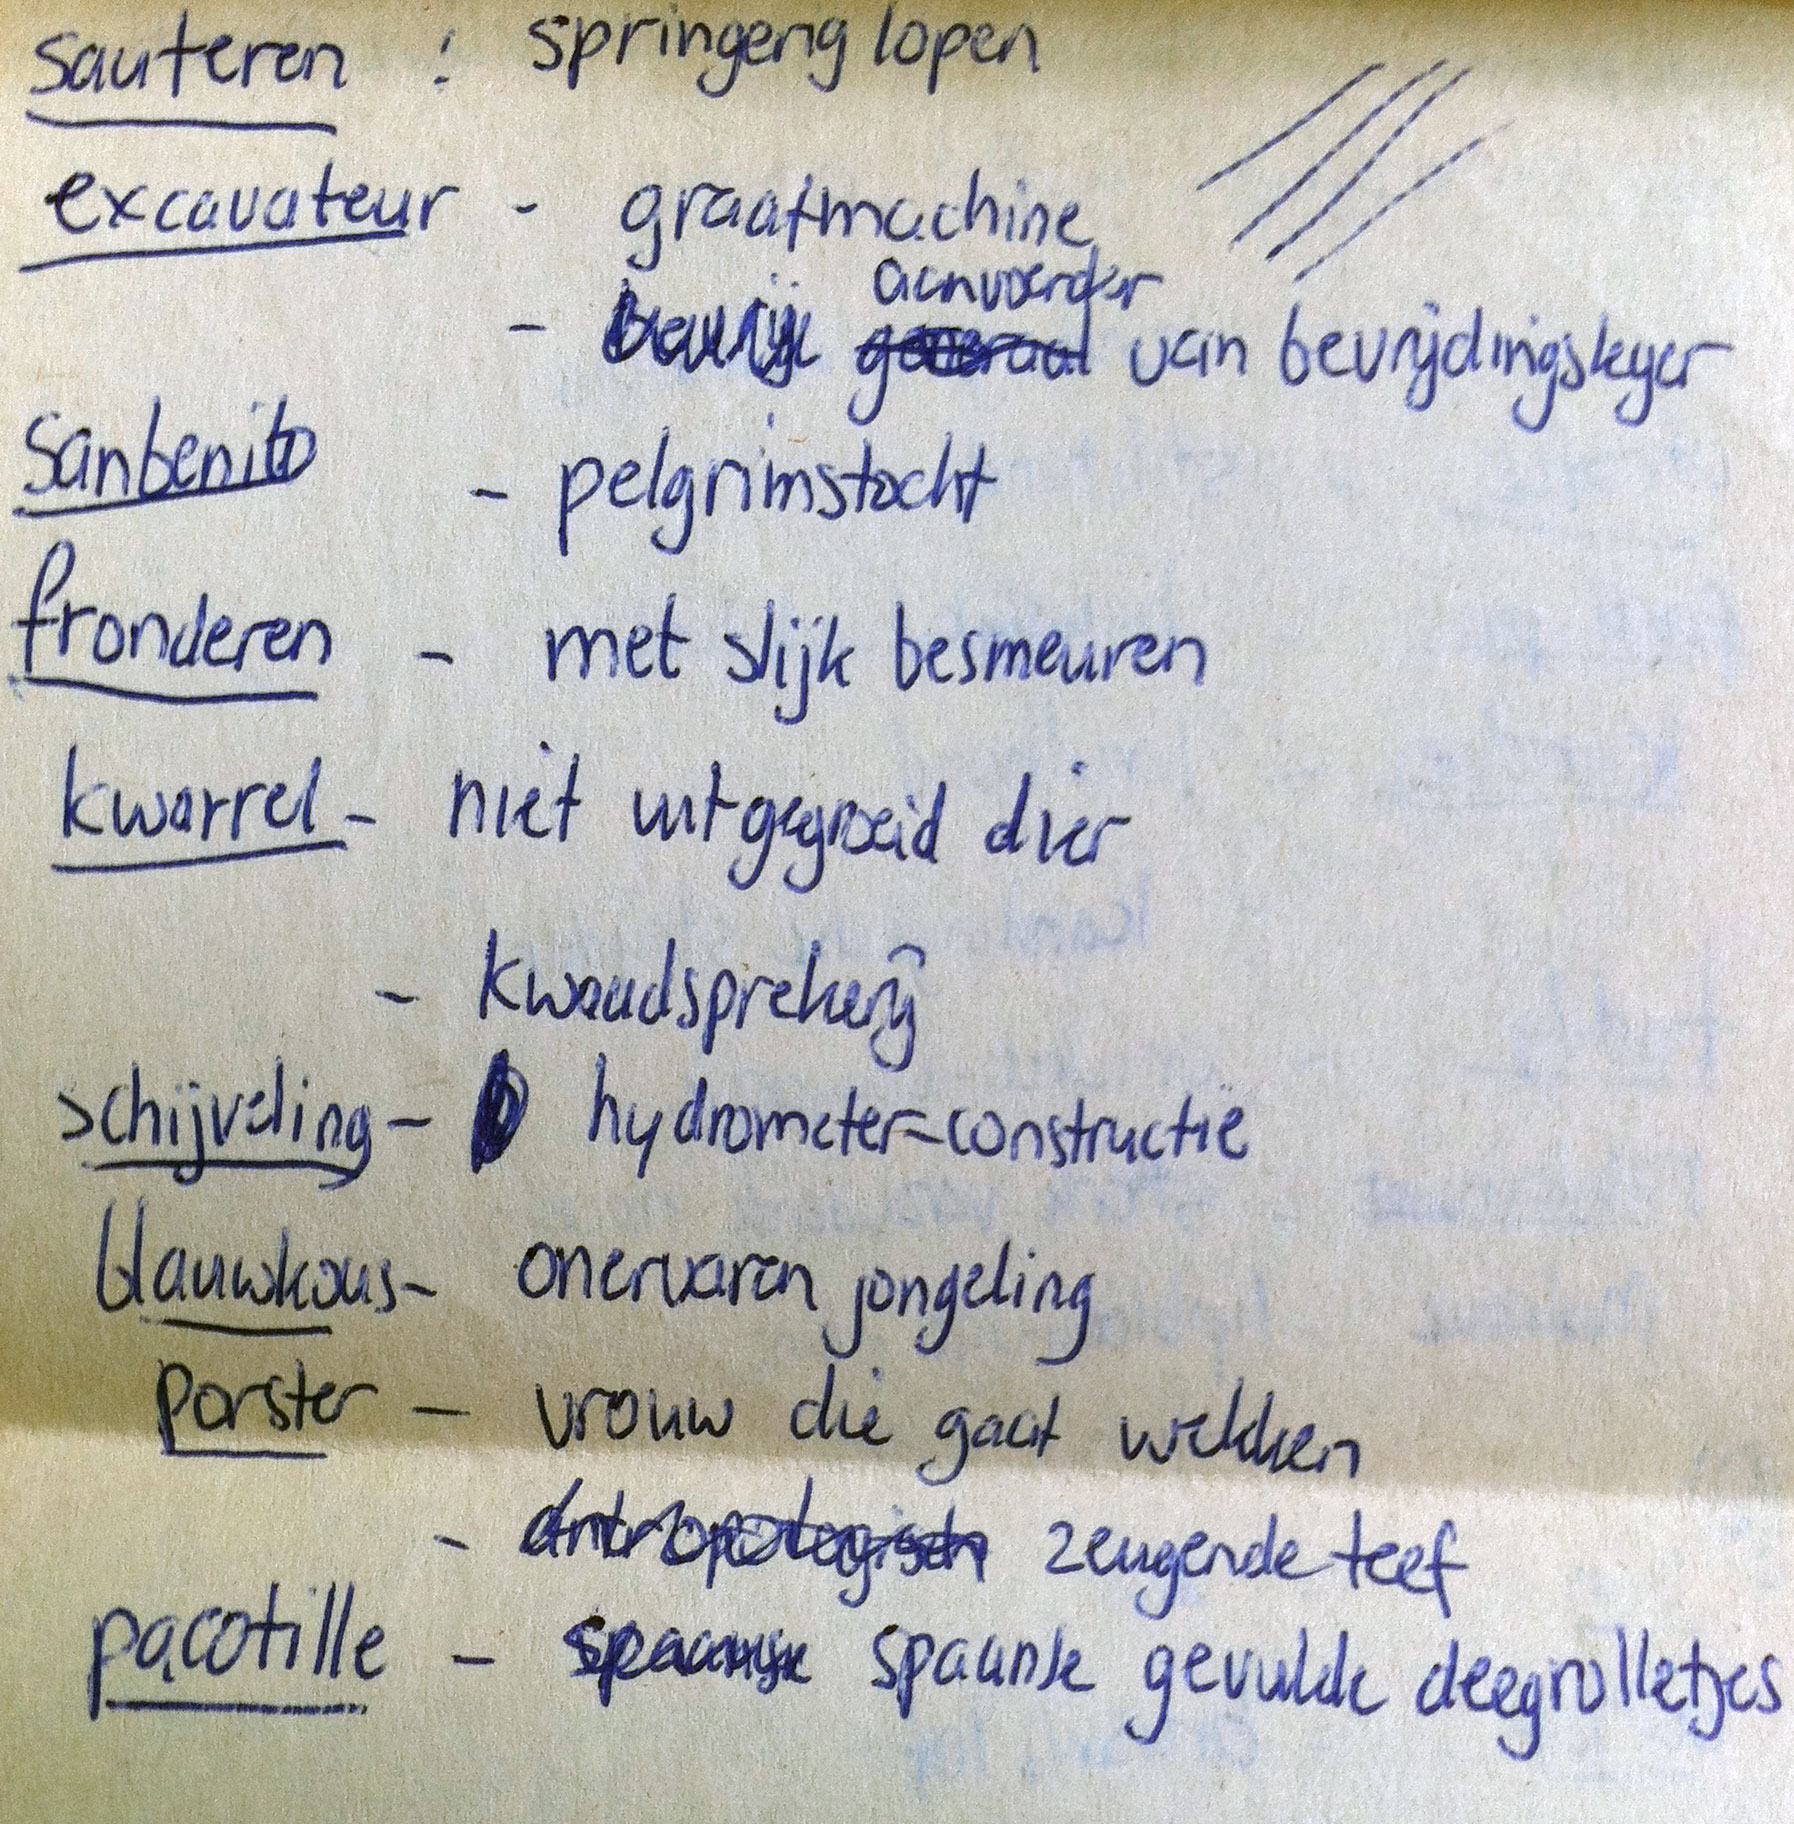 sauteren : springerig lopen
excavateur - graafmachine
aanvoerder
- generaal van bevrijdingsleger
Sanbenito - pelgrimstocht
fronderen - met slijk besmeuren
kwarrel - niet uitgegroeid dier
- kwaadsprekerij
schijveling - hydrometer-constructie
blauwkous - onervaren jongeling
porster - vrouw die gaat wekken
- antropologisch zeugende teef
pacotille - spaanse spaanse gevulde deegrolletjes